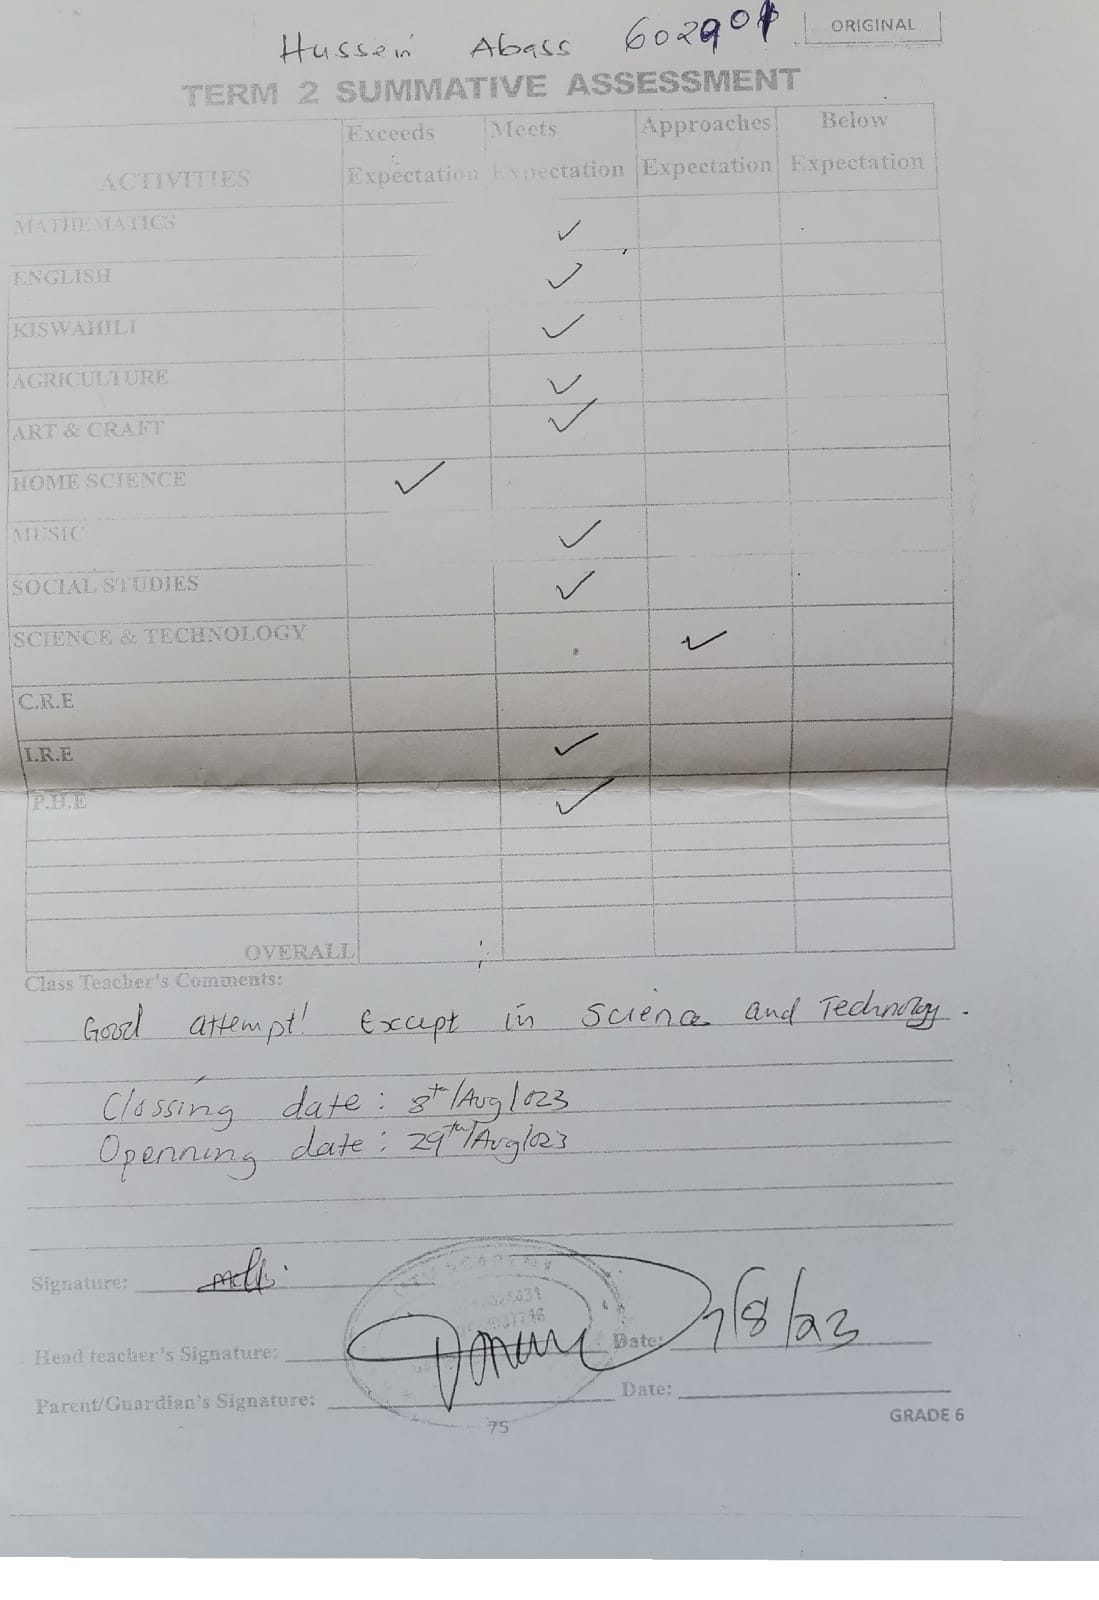 Hussein Abass 602901
ORIGINAL
TERM 2 SUMMATIVE ASSESSMENT
ACTIVITIES Exceeds Expectation Meets Expectation Approaches Expectation Below Expectation
MATHEMATICS ✓
ENGLISH ✓
KISWAHILI ✓
AGRICULTURE ✓
ART & CRAFT ✓
HOME SCIENCE ✓
MUSIC ✓
SOCIAL STUDIES ✓
SCIENCE & TECHNOLOGY ✓
C.R.E
I.R.E ✓
P.H.E ✓
OVERALL
Class Teacher's Comments:
Good attempt! Except in Science and Technology.
Clossing date: 8th/Aug/023
Openning date: 29th/Aug/023
Signature:
Head teacher's Signature: Date: 7/8/23
Parent/Guardian's Signature: Date:
75
GRADE 6